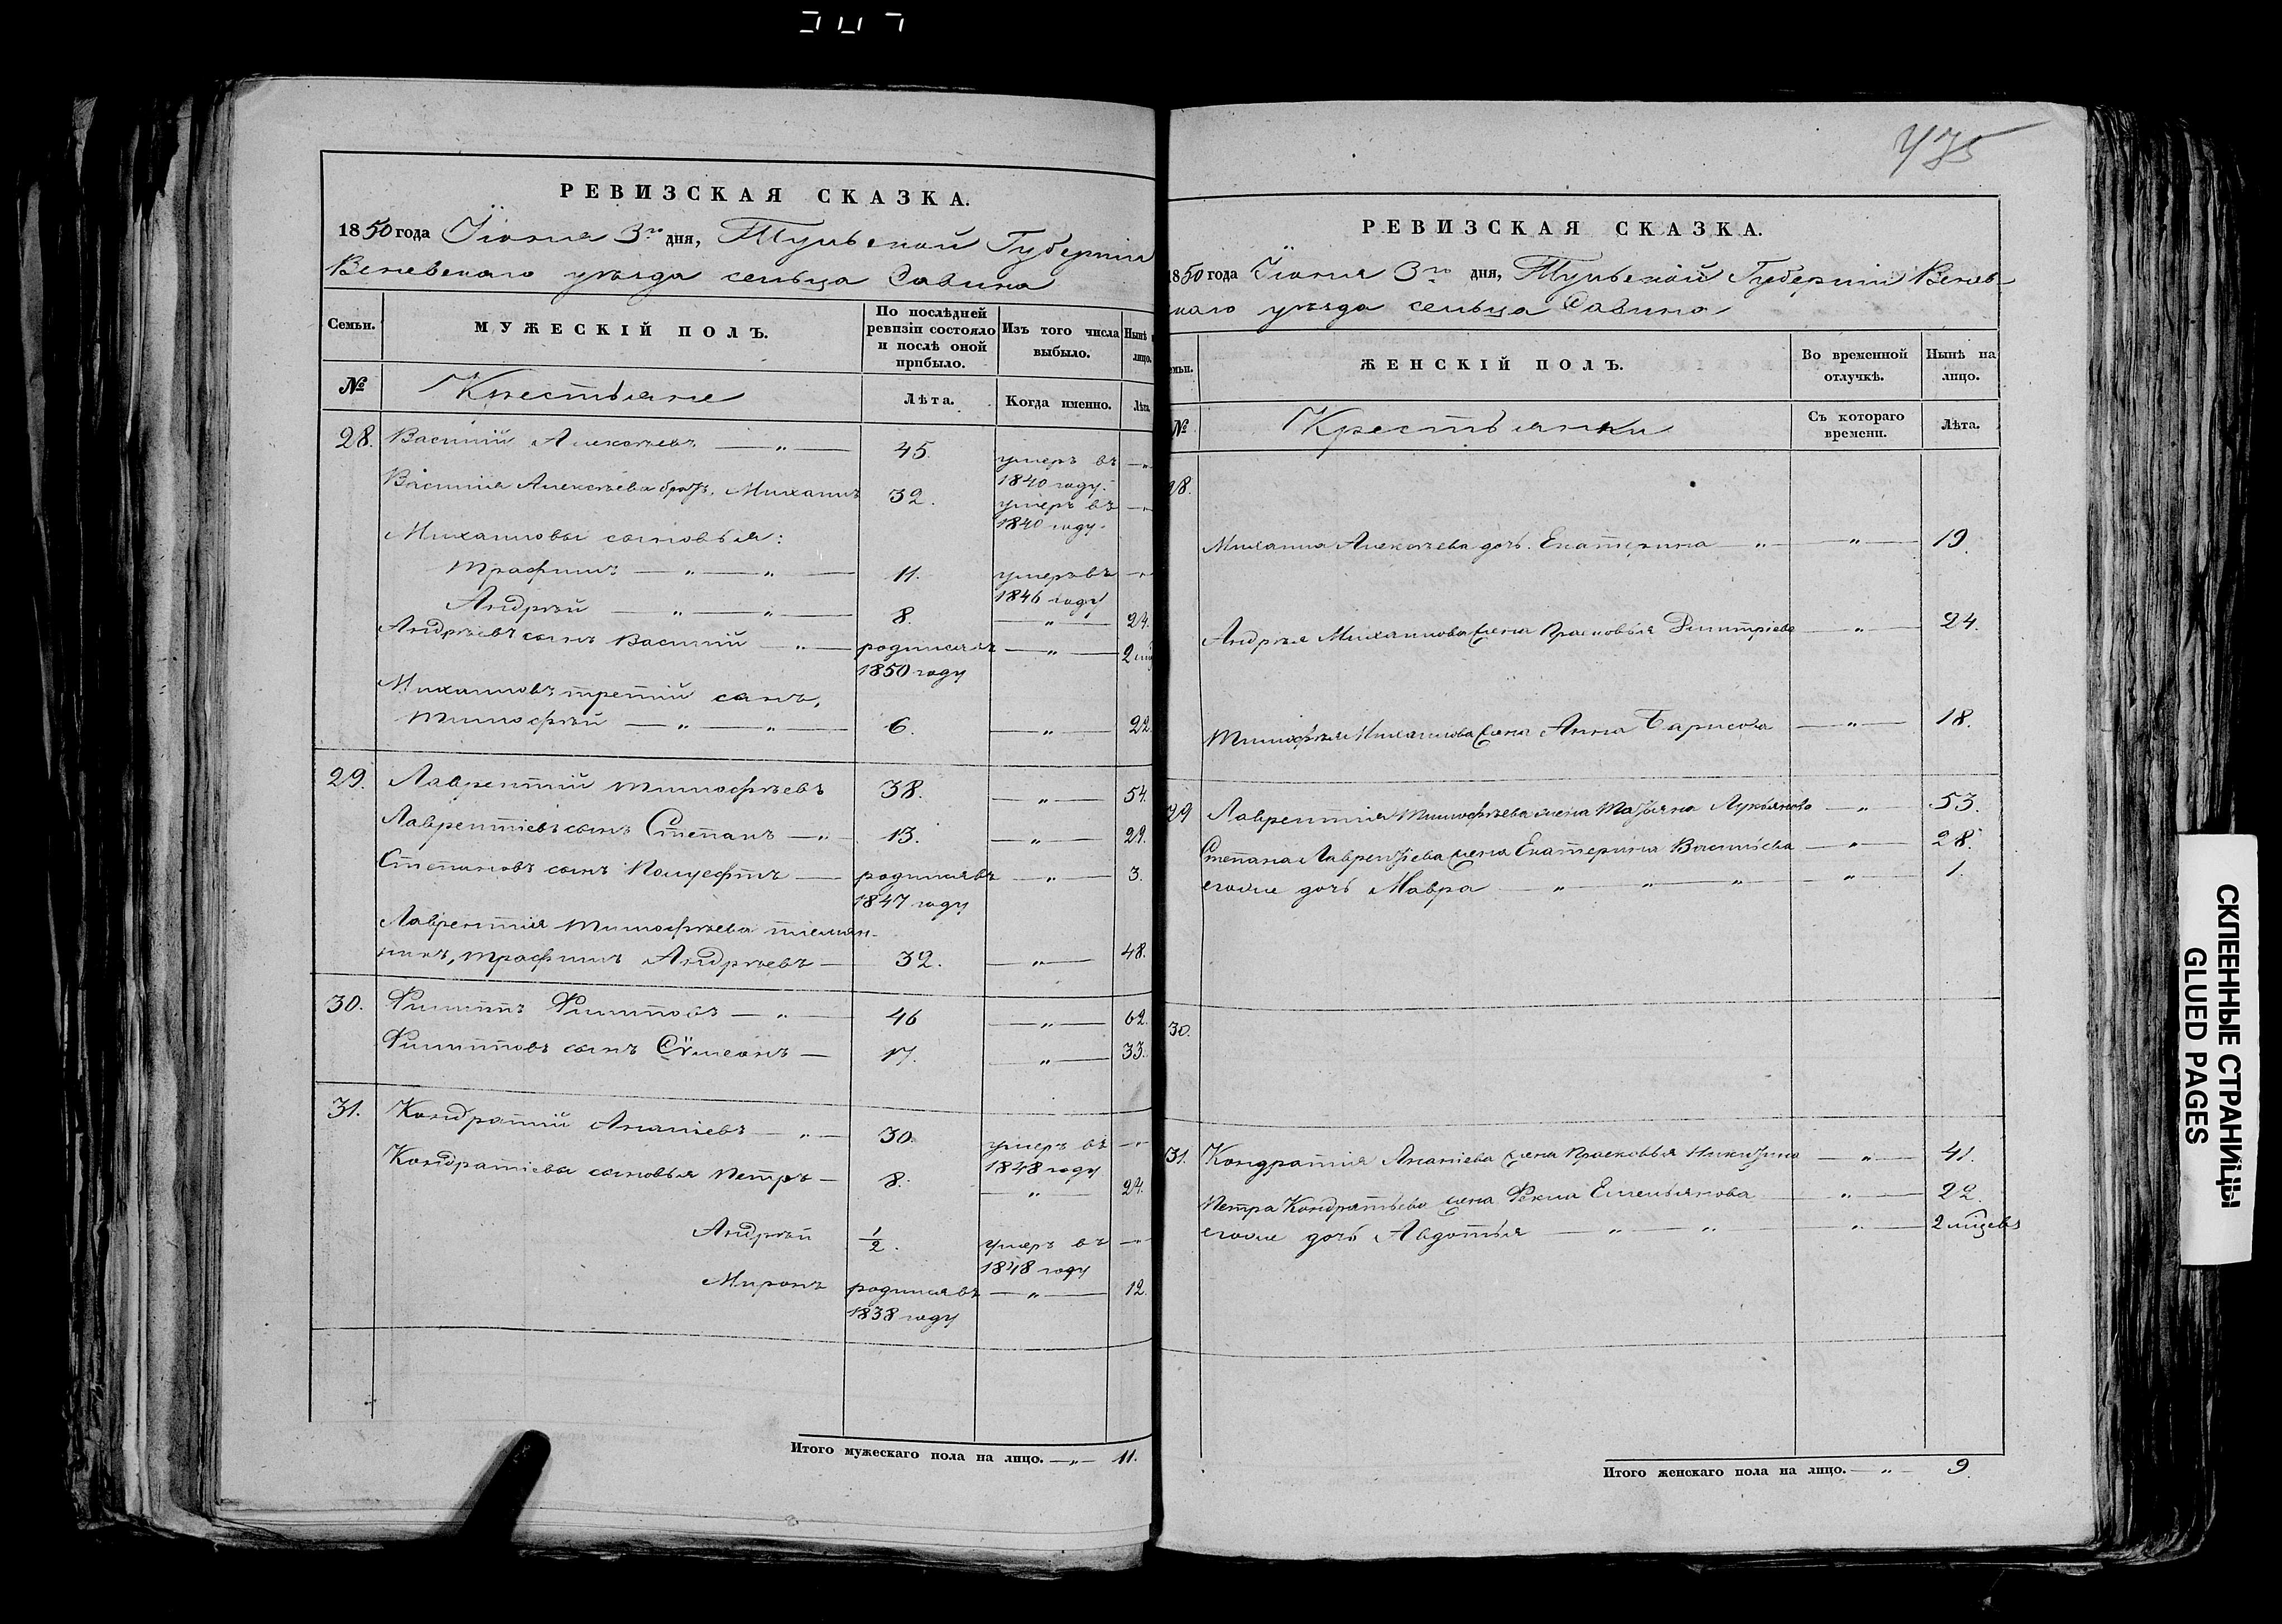 475
РЕВИЗСКАЯ СКАЗКА.
1850 года Іюня 3го дня, Тульской Губерніи
Веневскаго уѣзда сельца Савина
Семьи.
МУЖЕСКІЙ ПОЛЪ.
По послѣдней ревизіи состояло и послѣ оной прибыло.
Изъ того числа выбыло.
Нынѣ лицо.
№
Крестьяне
Лѣта.
Когда именно.
Лѣта.
28. Василій Алексѣевъ — „ — 45. умеръ въ 1840 году. — „
Василія Алексѣева братъ, Михаилъ 32. умеръ въ 1840 году. — „
Михаиловы сыновья:
Трафимъ — „ — „ — 11. умеръ въ 1846 году — „
Андрѣй — „ — „ — 8. — „ — 24.
Андрѣевъ сынъ Василій — „ — родился въ 1850 году — „ — 2
Михаиловъ третій сынъ,
Тимофѣй — „ — „ — 6. — „ — 22.
29. Лаврентій Тимофѣевъ 38. — „ — 54.
Лаврентіевъ сынъ Степанъ — „ 13. — „ — 29.
Степановъ сынъ Полуефтъ — родился въ 1847 году — „ — 3.
Лаврентія Тимофѣева племян-
никъ, Трафимъ Андрѣевъ — 32. — „ — 48.
30. Филиппъ Филиповъ — „ — 46 — „ — 62.
Филипповъ сынъ Сѵмеонъ — 17. — „ — 33.
31. Кондратій Ананіевъ — „ — 30. умеръ въ 1848 году — „
Кондратіевы сыновья Петръ — 8. — „ — 24.
Андрѣй 1/2. умеръ въ 1848 году — „
Миронъ родился въ 1838 году — „ — 12.
Итого мужескаго пола на лицо. — „ — 11.
РЕВИЗСКАЯ СКАЗКА.
1850 года Іюня 3го дня, Тульской Губерніи Венев-
скаго уѣзда сельца Савина
емьи.
ЖЕНСКІЙ ПОЛЪ.
Во временной отлучкѣ.
Нынѣ на лицо.
№
Крестьянки
Съ котораго времени.
Лѣта.
28.
Михаила Алексѣева дочь. Екатерина — „ — „ — 19.
Андрѣя Михаилова жена Прасковья Дмитріева — „ — 24.
Тимофѣя Михаилова жена Анна Барисова — „ — 18.
29 Лаврентія Тимофѣева жена Татьяна Лукьянова — „ — 53.
Степана Лаврентіева жена Екатерина Васильева — „ — 28.
егоже дочь Мавра — „ — „ — „ — „ — 1.
30.
31. Кондратія Ананіева жена Прасковья Никитина — „ — 41.
Петра Кондратьева жена Фекла Емельянова — „ — 22.
егоже дочь Авдотья — „ — „ — „ — 2 мѣсецъ
Итого женскаго пола на лицо. — „ — 9.
СКЛЕЕННЫЕ СТРАНИЦЫ
GLUED PAGES